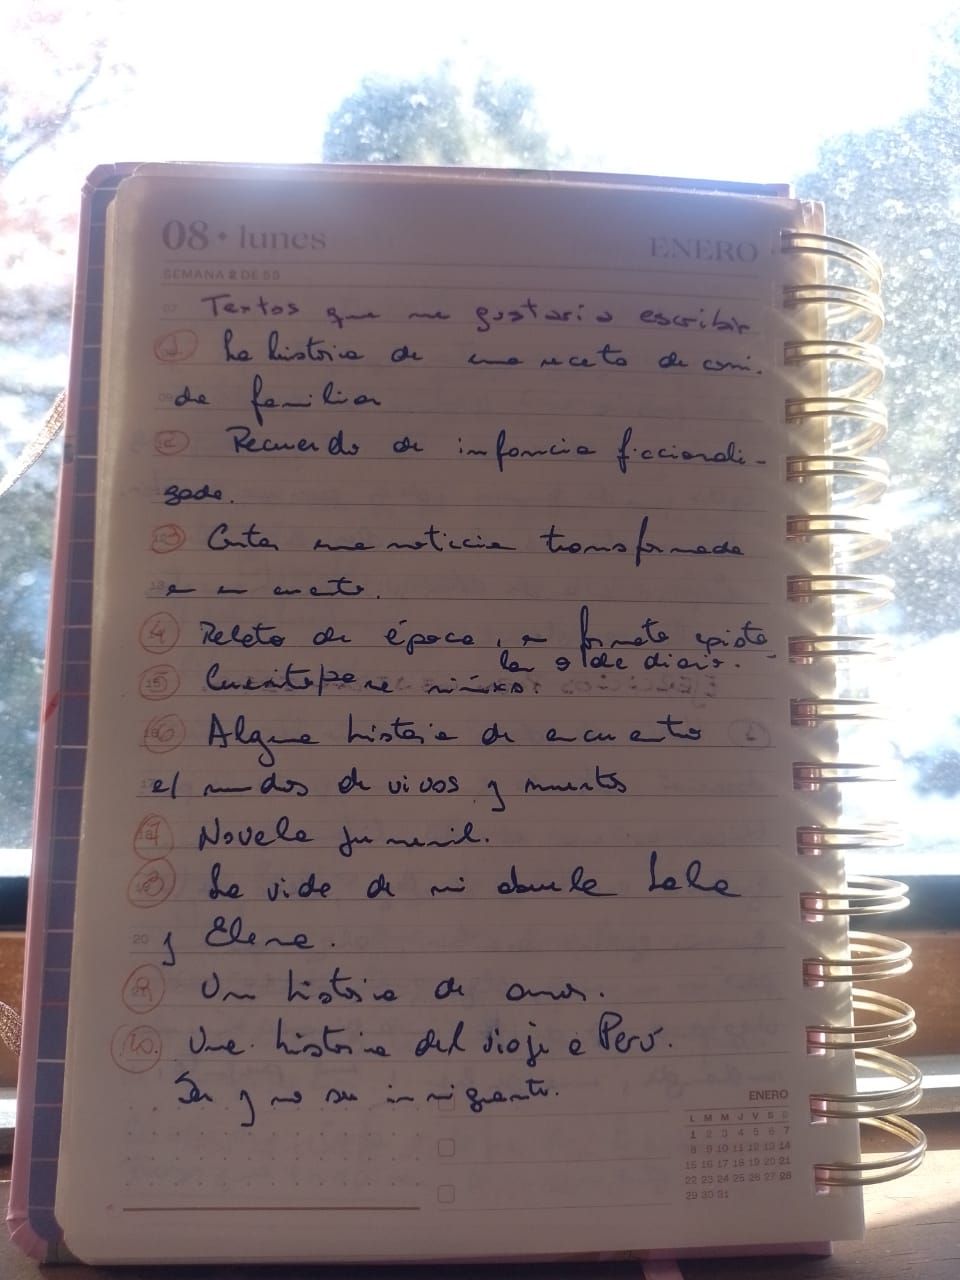 08 • lunes ENERO
SEMANA 2 DE 53
Textos que me gustaria escribir
1 La historia de una receta de comi-
da familiar
2 Recuerdo de infancia ficcionali-
zada.
3 Contar una noticia transformada
en un cuento.
4 Relato de época, en formato episto
lar o de diario.
5 Cuentos para niñxs.
6 Alguna historia de encuentro
e/ mundos de vivos y muertos
7 Novela juvenil.
8 La vida de mi abuela Lala
20 y Elena.
9 Una historia de amor.
10. Una historia del viaje a Perú.
Ser y no ser inmigrante.
ENERO
L M M J V S D
1 2 3 4 5 6 7
8 9 10 11 12 13 14
15 16 17 18 19 20 21
22 23 24 25 26 27 28
29 30 31